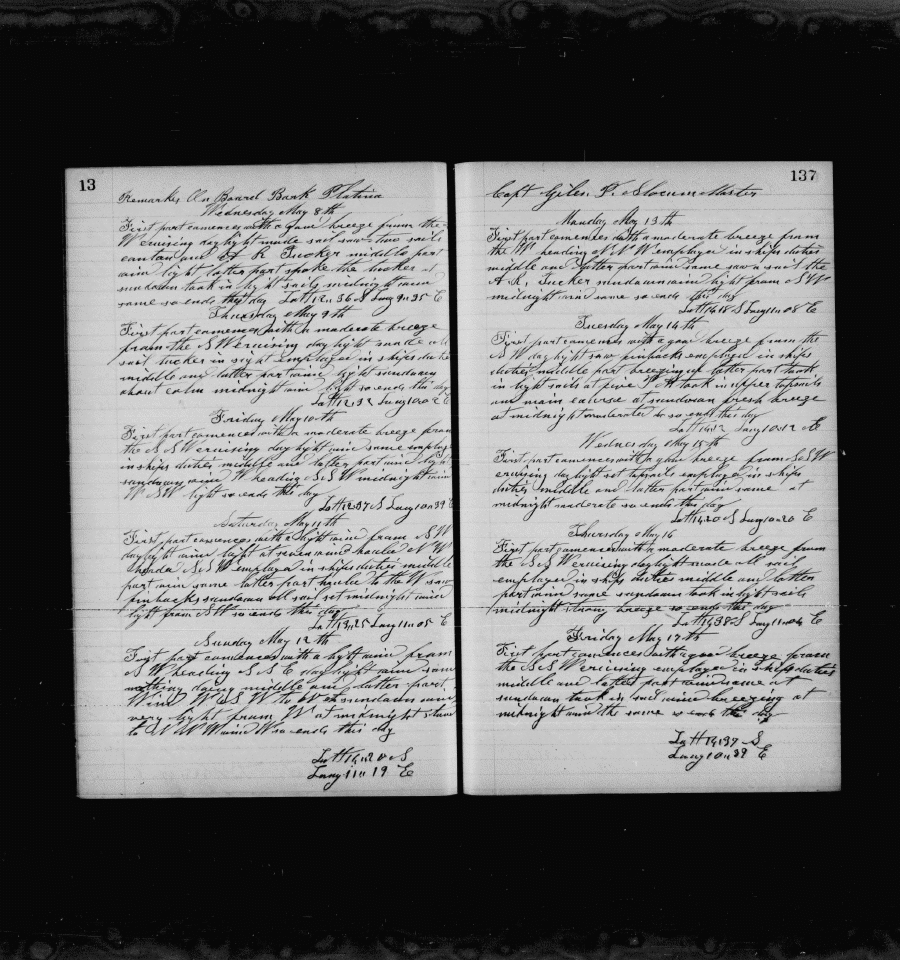 13
Remarks On Board Bark Platina
Wednesday May 8th
First part comences with a breeze from the
W cruising daylight made sail saw two sails
one A R Tucker middle part
wind light latter part spoke the tucker at
sundown took in light sails midnight wind
same so ends this day Latt 12"36 S Long 9"35 E
Thursday May 9th
First part comences with a moderate breeze
from the S W cruising day light made all
sail tucker in sight Employed in ships duties
middle and latter part wind light sundown
about calm midnight wind light so ends this day
Latt 12"32 Long 10"02 E
Friday May 10th
First part comences with a moderate breeze from
the S S W cruising day light wind same employed
in ships duties middle and latter part wind light
sundown wind W heading S S W midnight wind
W S W light so ends this day
Latt 12"37 S Long 10"39 E
Saturday May 11th
First part comences with a light wind from S W
daylight wind light at seven wind hauled N W
headed S S W Employed in ships duties middle
part wind same latter part hauled to the W saw
finbacks sundown all sail set midnight wind
light from S W so ends this day
Latt 13"25 Long 11"05 E
Sunday May 12th
First part comences with a light wind from
S W heading S S E day light wind same
nothing doing middle and latter part
Wind W S W to West sundown wind
very light from W at midnight
to N W Wind W so ends this day
Latt 14"20 S
Long 11"19 E
137
Capt Gilen P. Slocum Master
Monday May 13th
First part comences with a moderate breeze from
the W heading N N W employed in ships duties
middle and latter part wind same saw a sail the
A R, Tucker sundown wind light from S W
midnight wind same so ends this day
Latt 14"18 S Long 11"08 E
Tuesday May 14th
First part comences with a good breeze from the
S W day light saw finbacks employed in ships
duties middle part breezing up latter part took
in light sails at five P. M took in upper topsails
and main course at sundown fresh breeze
at midnight moderate so ends this day
Latt 14"32 Long 10"12 E
Wednesday May 15th
First part comences with a good breeze from S S W
cruising day light set topsails employed in ships
duties middle and latter part wind same at
midnight moderate so ends this day
Latt 14"20 S Long 10"20 E
Thursday May 16
First part comences with a moderate breeze from
the S S W cruising daylight made all sail
employed in ships duties middle and latter
part wind same sundown took in light sails
midnight strong breeze so ends this day
Latt 14"38 S Long 11"04 E
Friday May 17th
First part comences with a good breeze from
the S S W cruising employed in ships duties
middle and latter part wind same at
sundown took in sail wind breezing at
midnight wind the same so ends this day
Latt 14"37 S
Long 10"39 E